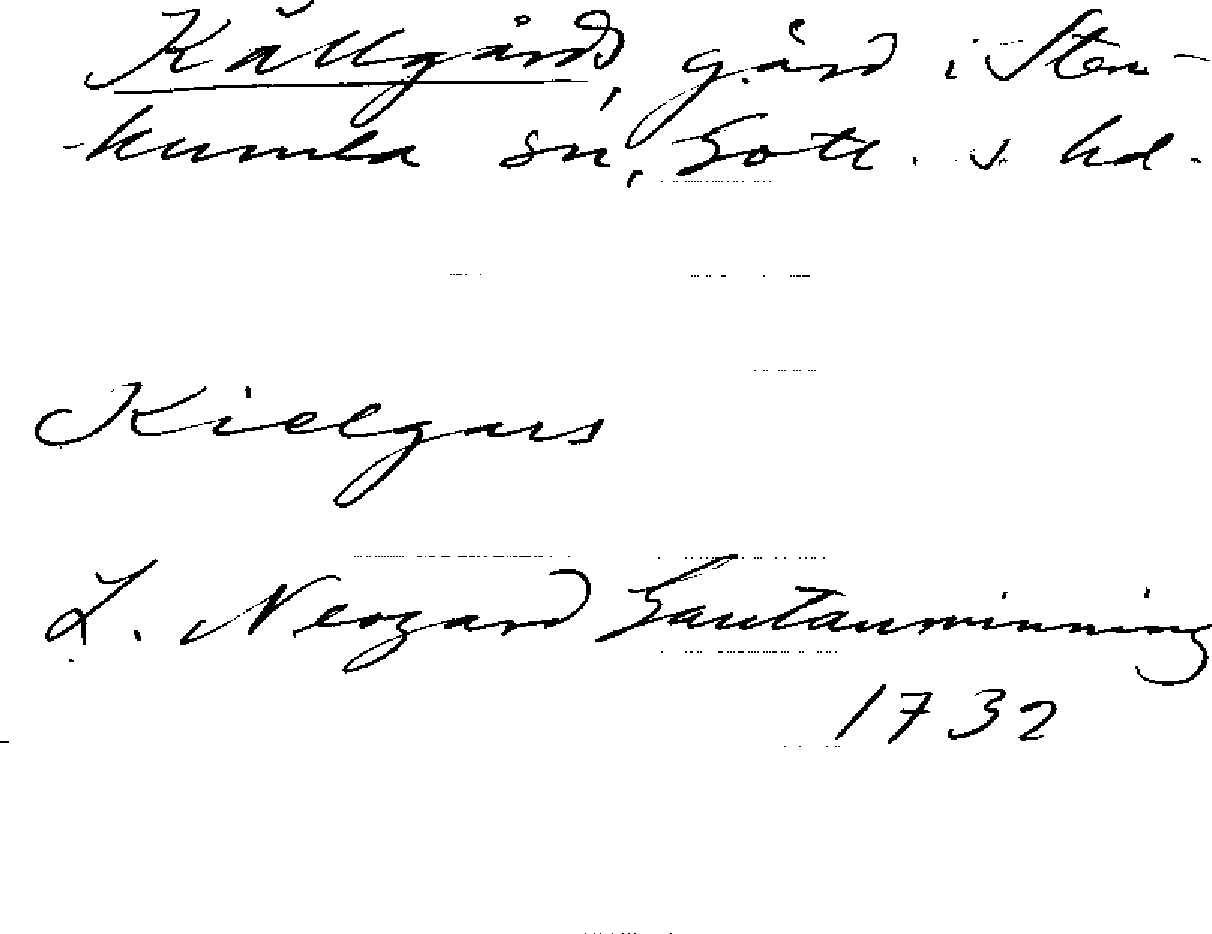 Källgårds, gård i Sten-
-kumla sn, Gotl. s hd.
Kielgars
L. Neogard Gautauminning
1732